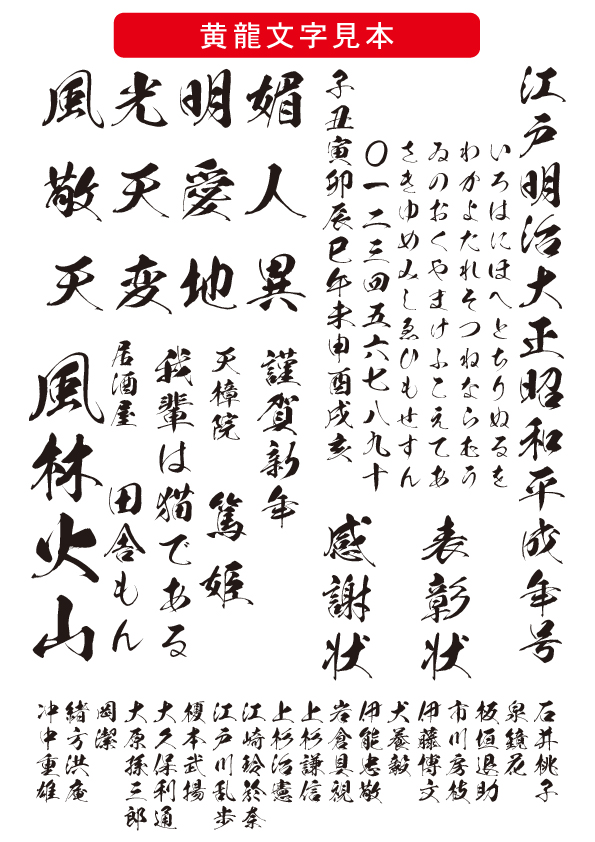 黄龍文字見本
江戸明治大正昭和平成年号
いろはにほへとちりぬるを
わかよたれそつねならむう
ゐのおくやまけふこえてあ
さきゆめみしゑひもせすん
〇一二三四五六七八九十
子丑寅卯辰巳午未申酉戌亥
表彰状
感謝状
媚人異
明愛地
光天変
風敬天
謹賀新年
天樟院 篤姫
我輩は猫である
居酒屋 田舎もん
風林火山
石井桃子
泉鏡花
板垣退助
市川房枝
伊藤博文
犬養毅
伊能忠敬
岩倉具視
上杉謙信
上杉治憲
江崎玲於奈
江戸川乱歩
榎本武揚
大久保利通
大原孫三郎
岡潔
緒方洪庵
沖中重雄